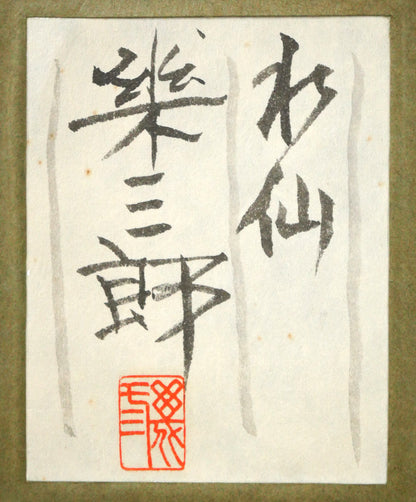 水仙
幾三郎